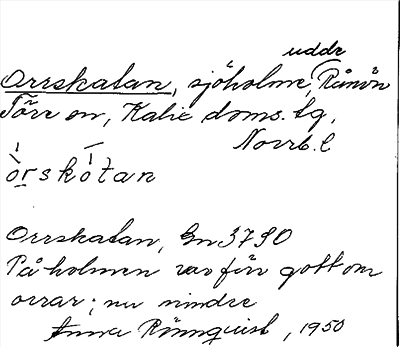 uddr
Orrskatan, sjöholme, Rånön
Töre sn, Kalix doms. tg,
Norrb. l
òrskòtan
Orrskatan, Gn 3790
På holmen var förr gott om
orrar; nu mindre
Anna Rönnquist, 1950